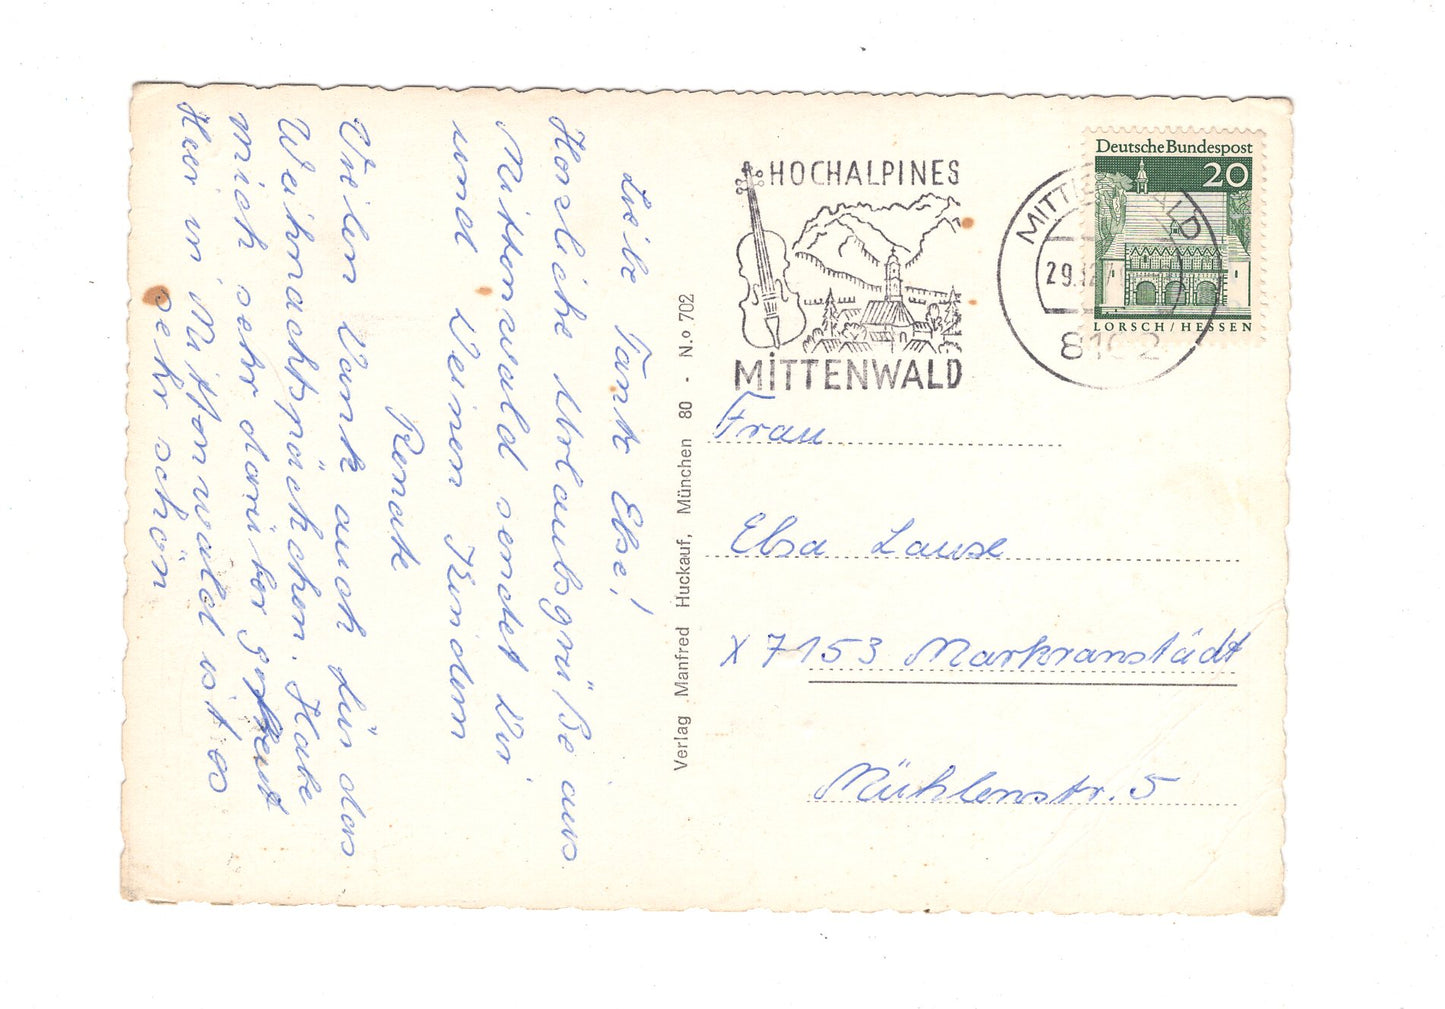 Liebe Tante Else!
Herzliche Urlaubsgrüße aus
Mittenwald sendet Dir
und Deinen Kindern
Renate
Vielen Dank auch für das
Weihnachtspäckchen. Habe
mich sehr darüber gefreut
Hier in Mittenwald ist es
sehr schön
Verlag Manfred Huckauf, München 80 - N.o 702
HOCHALPINES
MITTENWALD
MITTENWALD
29.12.
8102
Deutsche Bundespost
20
LORSCH/HESSEN
Frau
Elsa Lause
X 7153 Markranstädt
Mühlenstr. 5